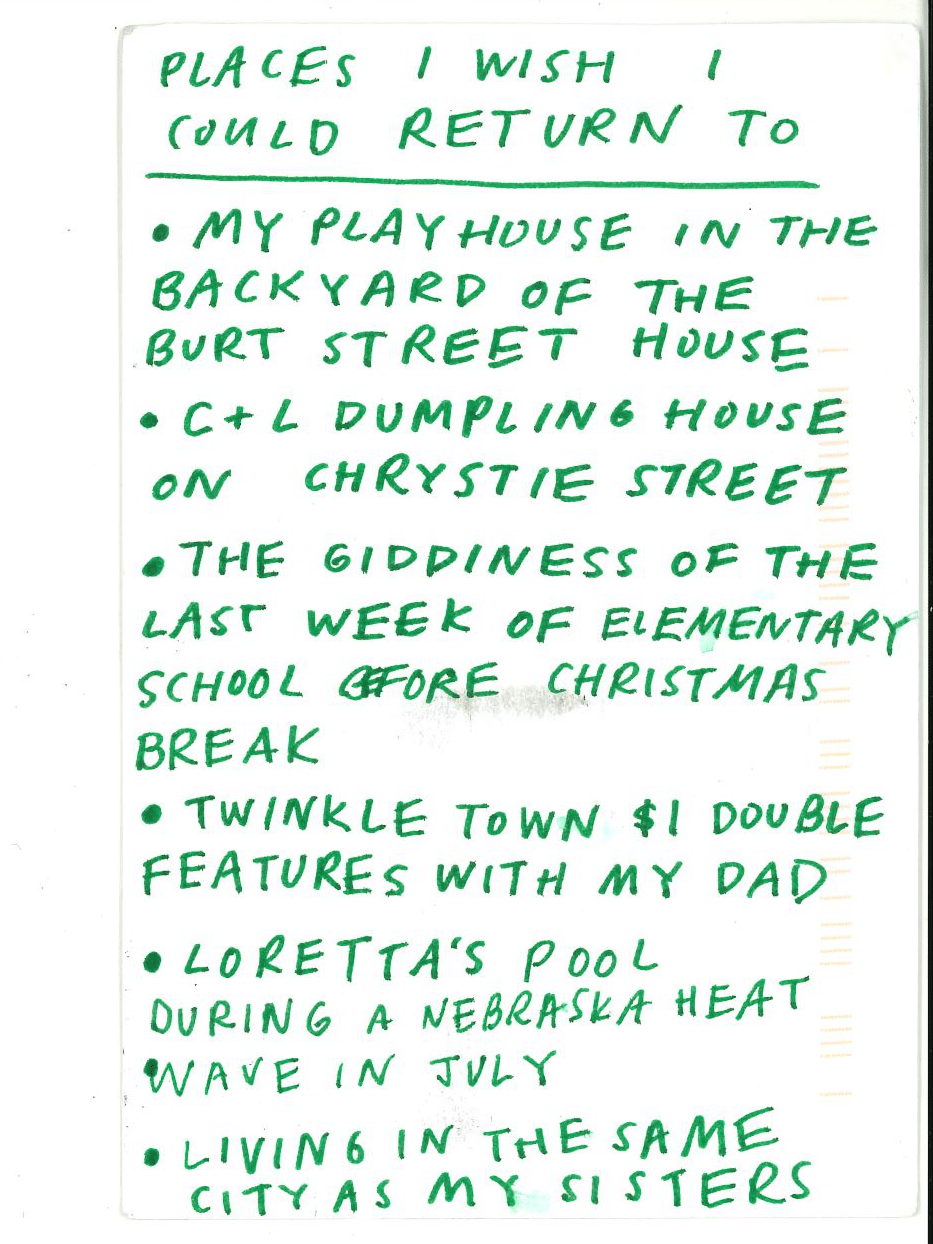 PLACES I WISH I
COULD RETURN TO
• MY PLAYHOUSE IN THE
BACKYARD OF THE
BURT STREET HOUSE
• C+L DUMPLING HOUSE
ON CHRYSTIE STREET
• THE GIDDINESS OF THE
LAST WEEK OF ELEMENTARY
SCHOOL BEFORE CHRISTMAS
BREAK
• TWINKLE TOWN $1 DOUBLE
FEATURES WITH MY DAD
• LORETTA'S POOL
DURING A NEBRASKA HEAT
WAVE IN JULY
• LIVING IN THE SAME
CITY AS MY SISTERS